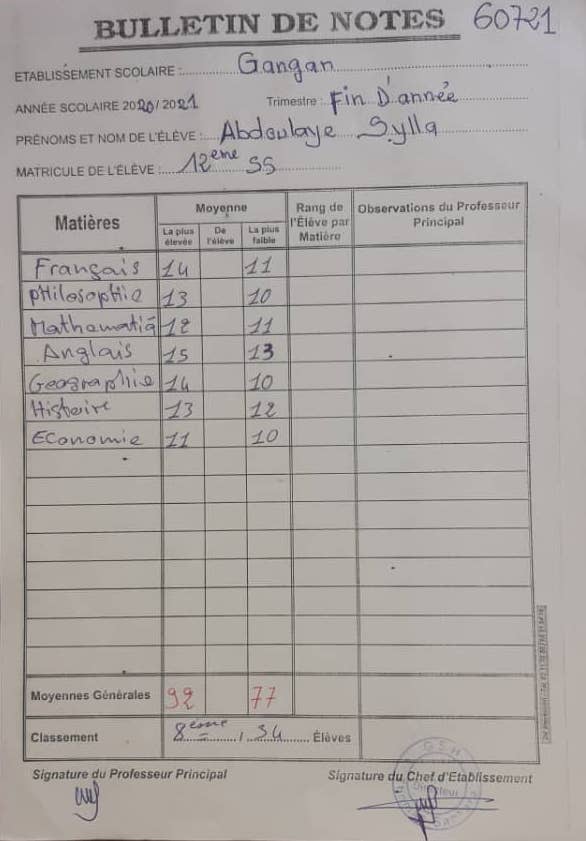 BULLETIN DE NOTES 60721
ETABLISSEMENT SCOLAIRE : Gangan
ANNÉE SCOLAIRE 2020/2021 Trimestre : Fin D'année
PRÉNOMS ET NOM DE L'ÉLÈVE : Abdoulaye Sylla
MATRICULE DE L'ÉLÈVE : 12ème SS
Matières Moyenne Rang de l'Élève par Matière Observations du Professeur Principal
La plus élevée De l'élève La plus faible
Français 14 11
Philosophie 13 10
Mathematiq 12 11
Anglais 15 13
Geographie 14 10
Histoire 13 12
Economie 11 10
Moyennes Générales 92 77
Classement 8ème / 34 Élèves
Signature du Professeur Principal Signature du Chef d'Etablissement